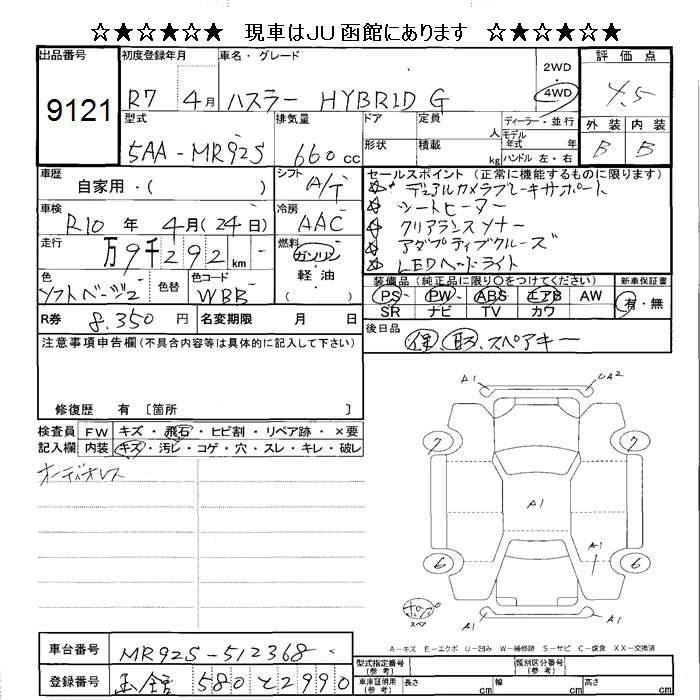 ☆★☆★☆★ 現車はJU函館にあります ☆★☆★☆★
出品番号 9121
初度登録年月 R7 4月
車名・グレード ハスラー HYBRID G
2WD 4WD
評価点 4.5
外装 B 内装 B
型式 5AA-MR92S
排気量 660 cc
ドア 形状
定員 人
積載 kg
ディーラー・並行
モデル年式 年
ハンドル 左・右
車歴 自家用・( )
シフト A/T
車検 R10 年 4月(24日)
冷房 AAC
走行 万9千292 km
燃料 ガソリン 軽油 ( )
色 ソフトベージュ2 色替
色コード WBB
R券 8,350 円
名変期限 月 日
セールスポイント (正常に機能するものに限ります)
☆ デュアルカメラブレーキサポート
☆ シートヒーター
☆ クリアランスソナー
☆ アダプティブクルーズ
☆ LEDヘッドライト
装備品 (純正品に限り○をつけてください)
新車保証書 有・無
PS PW ABS エアB AW
SR ナビ TV カワ
後日品 保 取 スペアキー
注意事項申告欄(不具合内容等は具体的に記入して下さい)
修復歴 有 〔箇所 〕
検査員記入欄
FW キズ・飛石・ヒビ割・リペア跡・×要
内装 キズ・汚レ・コゲ・穴・スレ・キレ・破レ
オーディオレス
A1 UA2
7 7
A1
A1
6 6
スペア
A1 A1
A-キズ E-エクボ U-凹み W-補修跡 S-サビ C-腐食 XX-交換済
車台番号 MR92S-512368
登録番号 函館 580 と 2990
型式指定番号(参考)
類別区分番号(参考)
車庫証明用(参考) 長さ cm 幅 cm 高さ cm